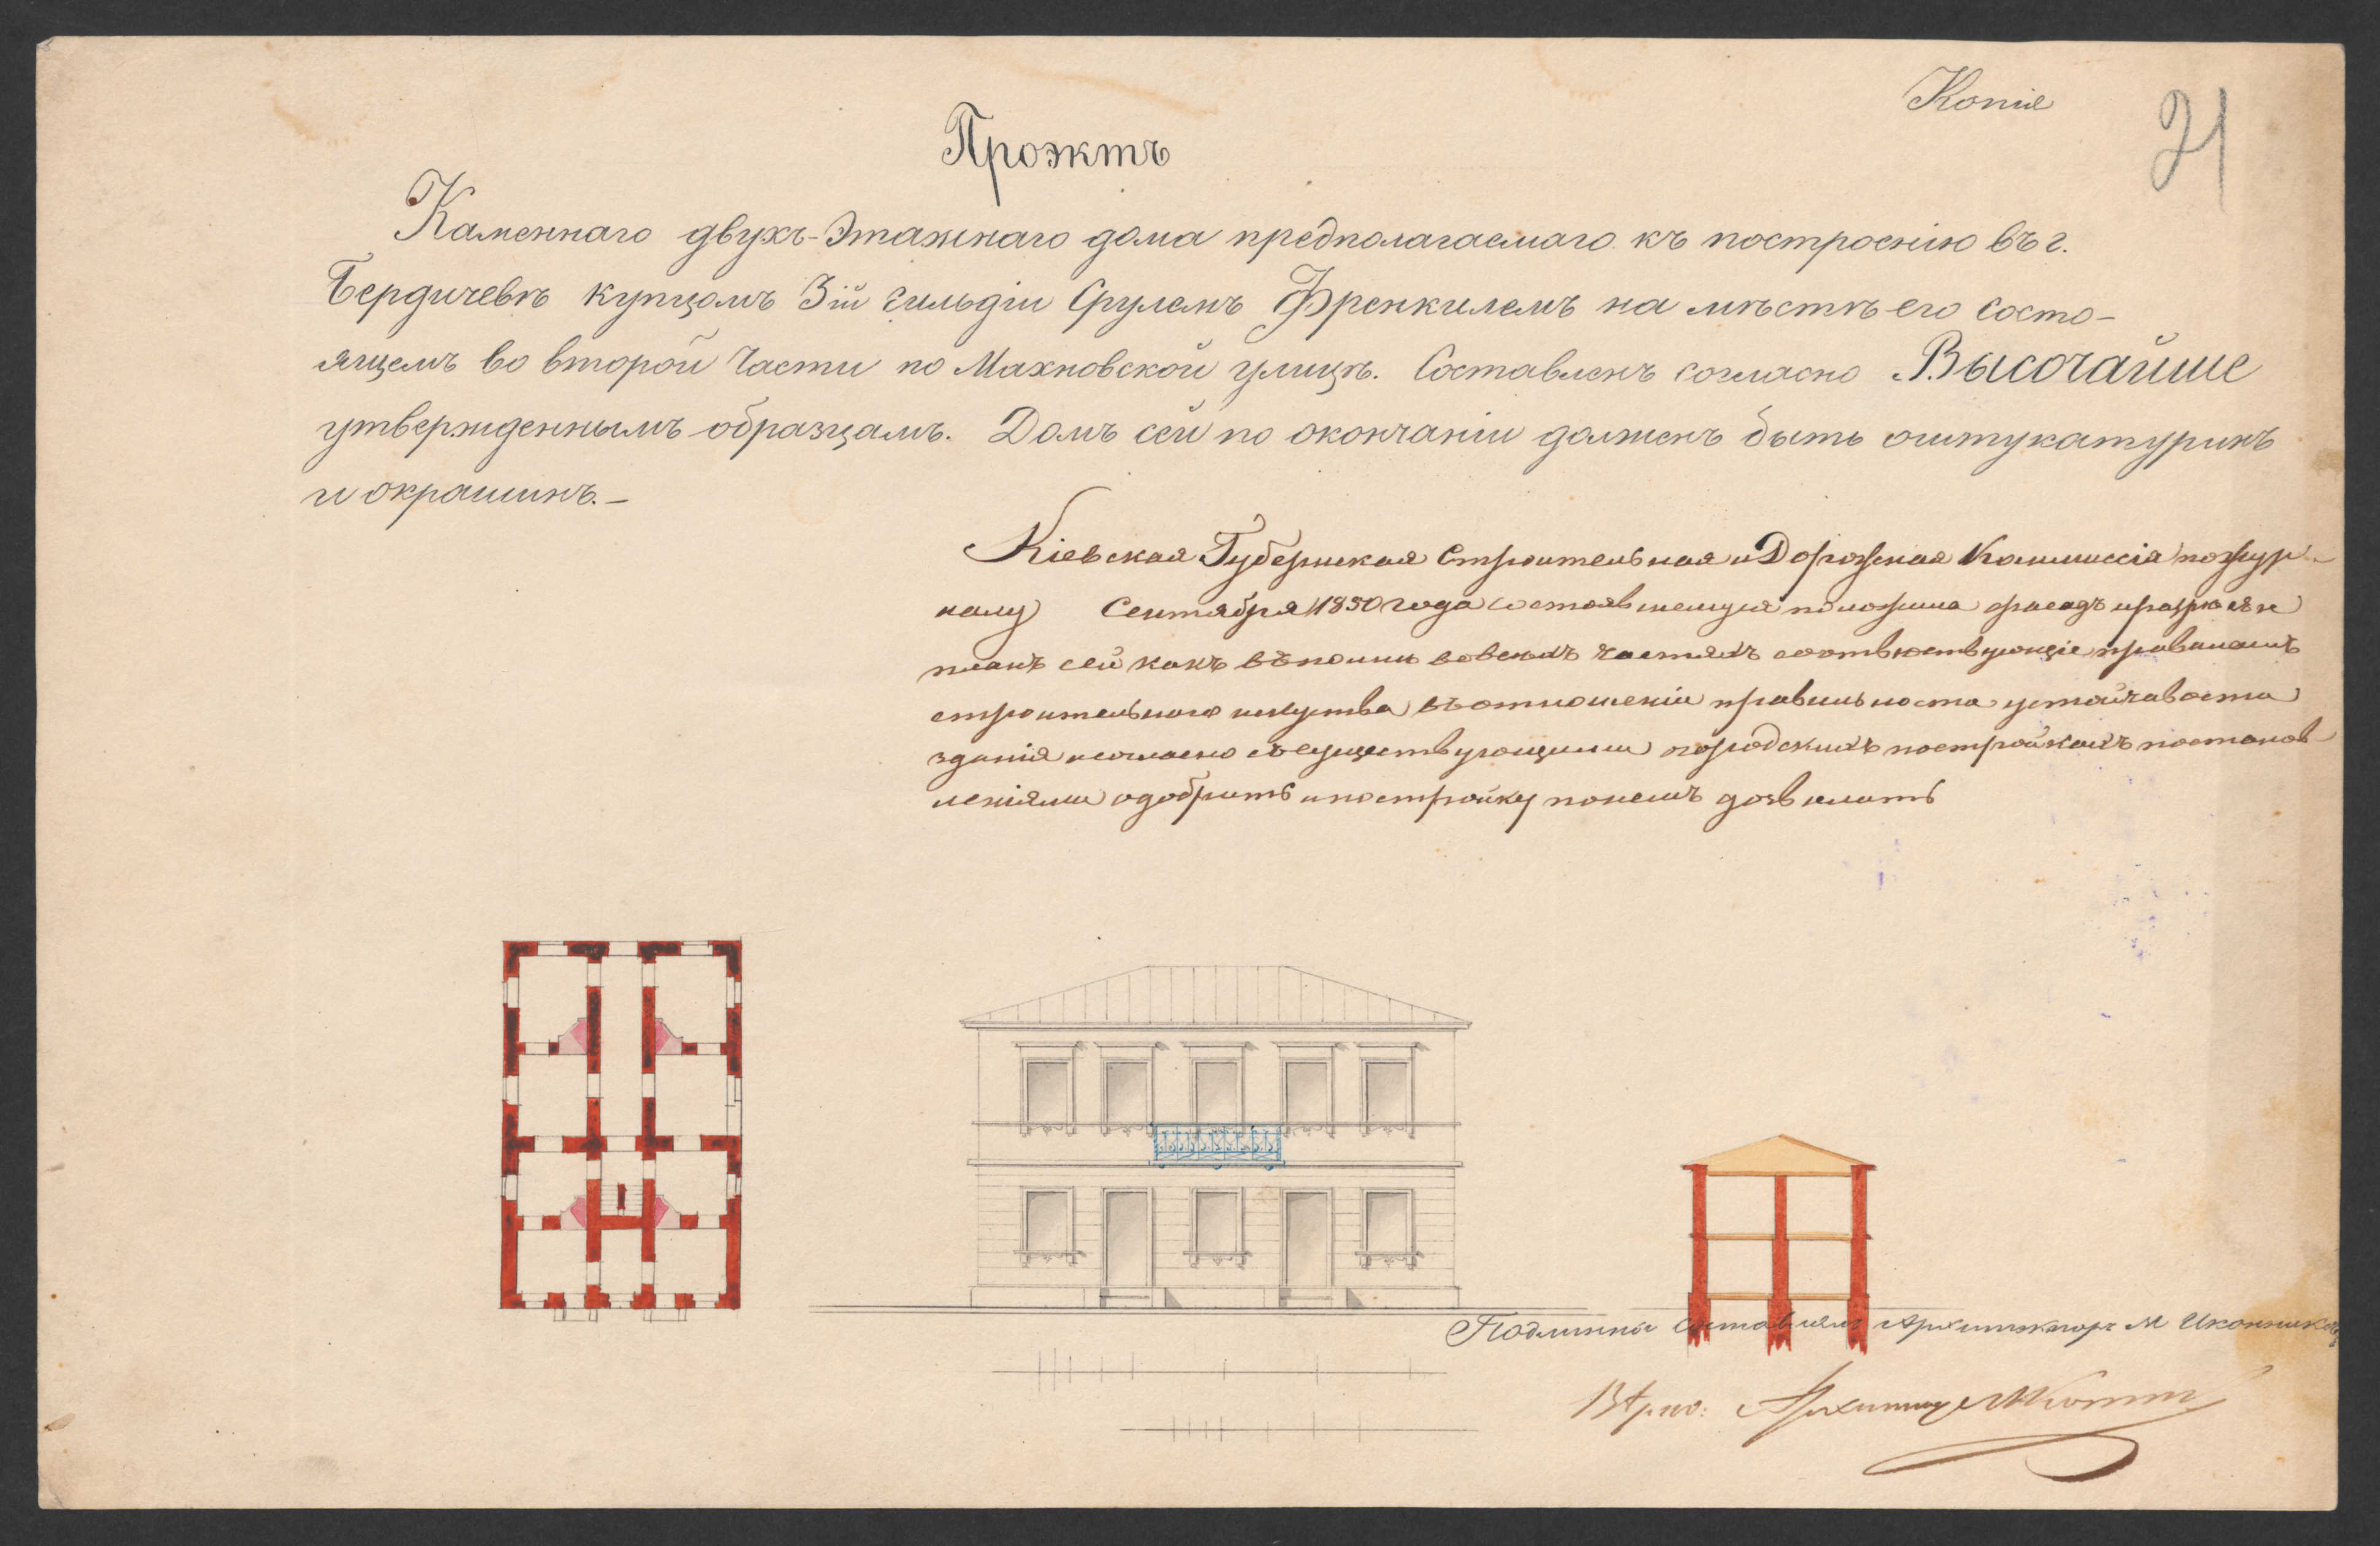 Копія
21
Проэктъ
Каменнаго двухъ-Этажнаго дома предполагаемаго къ построенію въ г.
Бердичевѣ купцомъ 3ій гильдіи Срулемъ Френкилемъ на мѣстѣ его состо-
ящемъ во второй Части по Махновской улицѣ. Составленъ согласно Высочайше
утвержденнымъ образцамъ. Домъ сей по окончаніи долженъ быть оштукатуринъ
и окрашинъ.-
Кіевская Губернская Строительная и Дорожная Коммиссія по жур-
налу Сентября 1850 года состоявшемуся положила фасадъ и
планъ сей какъ вѣполнѣ во всѣхъ частяхъ соотвѣтствующіе правиламъ
строительнаго искуства въ отношеніи правильности устойчивости
зданія и согласно съ существующими о городскихъ постройкахъ постанов-
леніями одобрить и постройку по немъ дозволить
Подлинный Составлялъ Архитекторъ М Иконниковъ
Вѣрно: